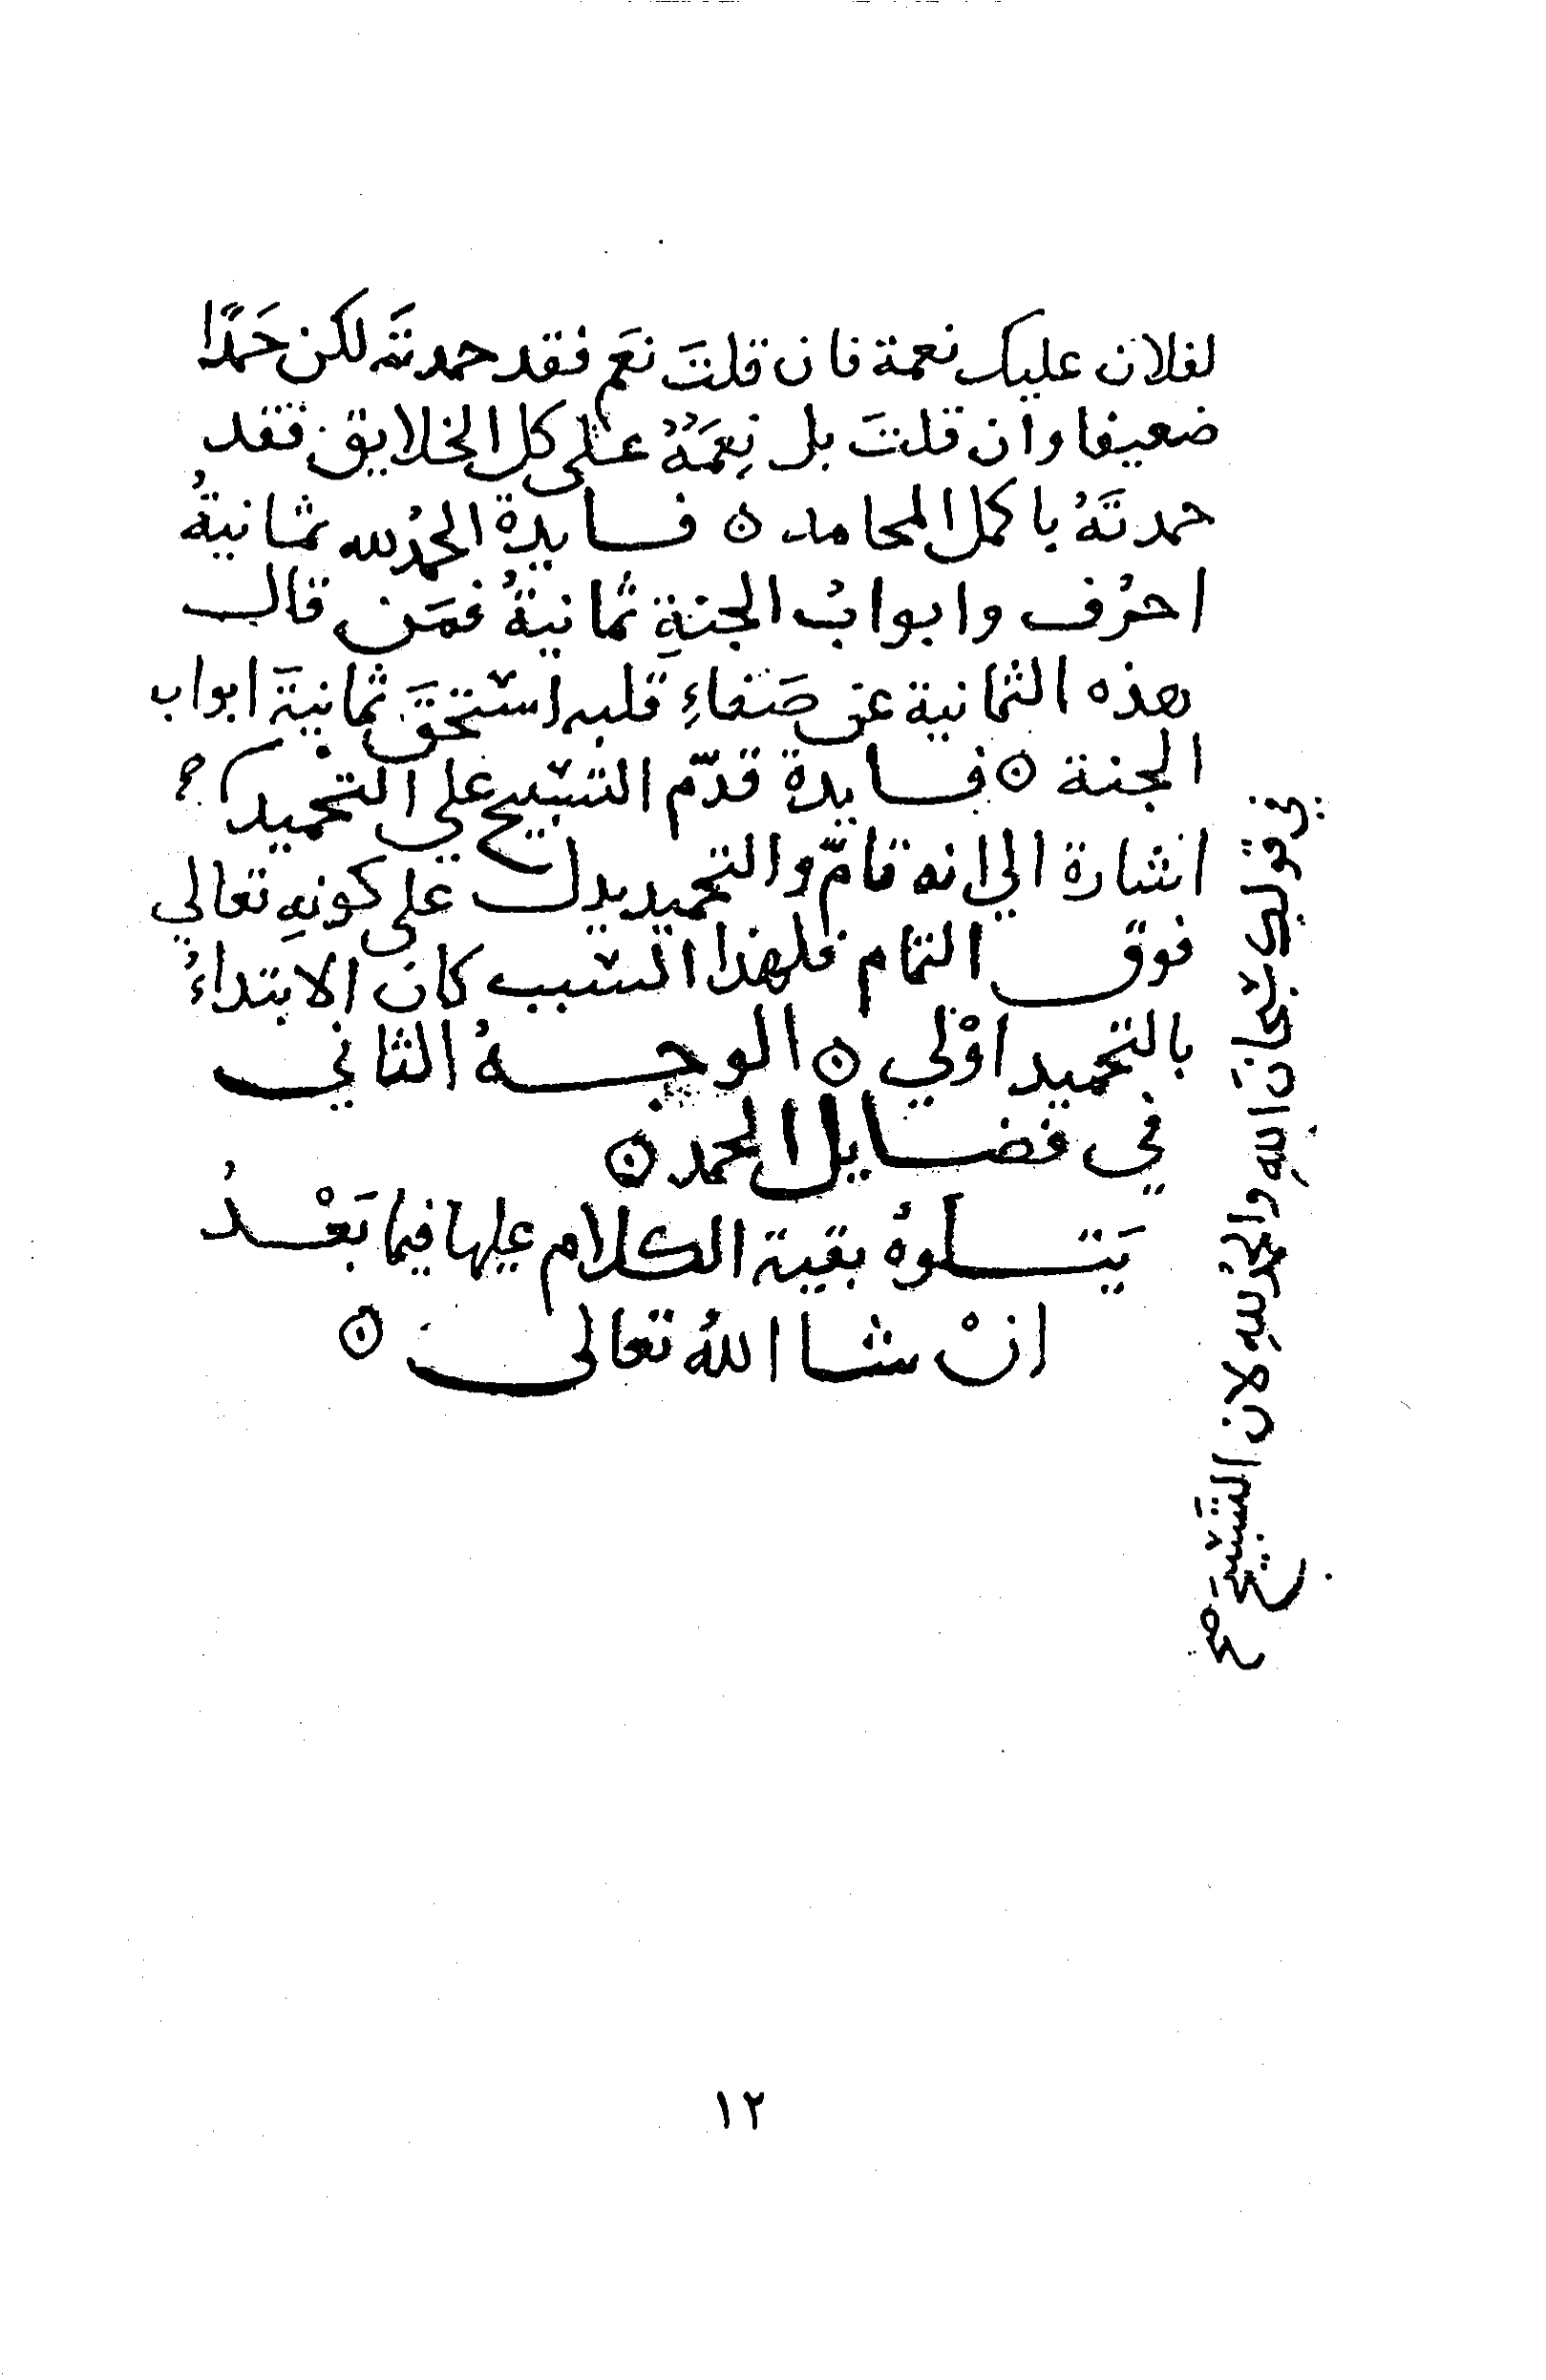 لفلان عليك نعمة فان قلتَ نعَم فقد حمدتَه لكن حَمْدًا
ضعيفا وان قلتَ بل نِعَمُهُ على كل الخلايق فقد
حمدتَهُ باكمل المحامد ۞ فايدة الحمدُ لله ثمانيةُ
احرُف وابوابُ الجنةِ ثمانيةُ فمَن قال
هذه الثمانية عن صَفاءِ قلبه استحقَّ ثمانيَةَ ابواب
الجنة ۞ فايدة قدّم التسبيح علي التحميد
اشارة الي انه تامٌّ والتحميد يدل على كونِهِ تعالي
فوق التمام فلهذا السبب كان الابتداءُ
بالتحميد اوْلي ۞ الوجهُ الثاني
في فضايل الحمد ۞
يَتلوهُ بقية الكلام عليها فيما بَعْدُ
انْ شا اللهُ تعالى ۞
في قولك سُبْحانَ اللهِ والحمدُ للهِ لان التَسْبيحَ صح
١٢